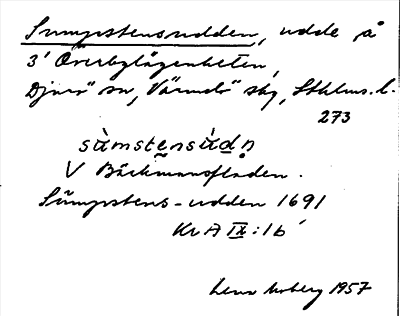 Sumpstensudden, udde på
3' Överbylägenheten,
Djurö sn, Värmdö skg, Sthlms. l.
273
sùmstensùdn
V Bäckmansfladen.
Sűmpstens-udden 1691
Kr A IX:16
Lena Moberg 1957